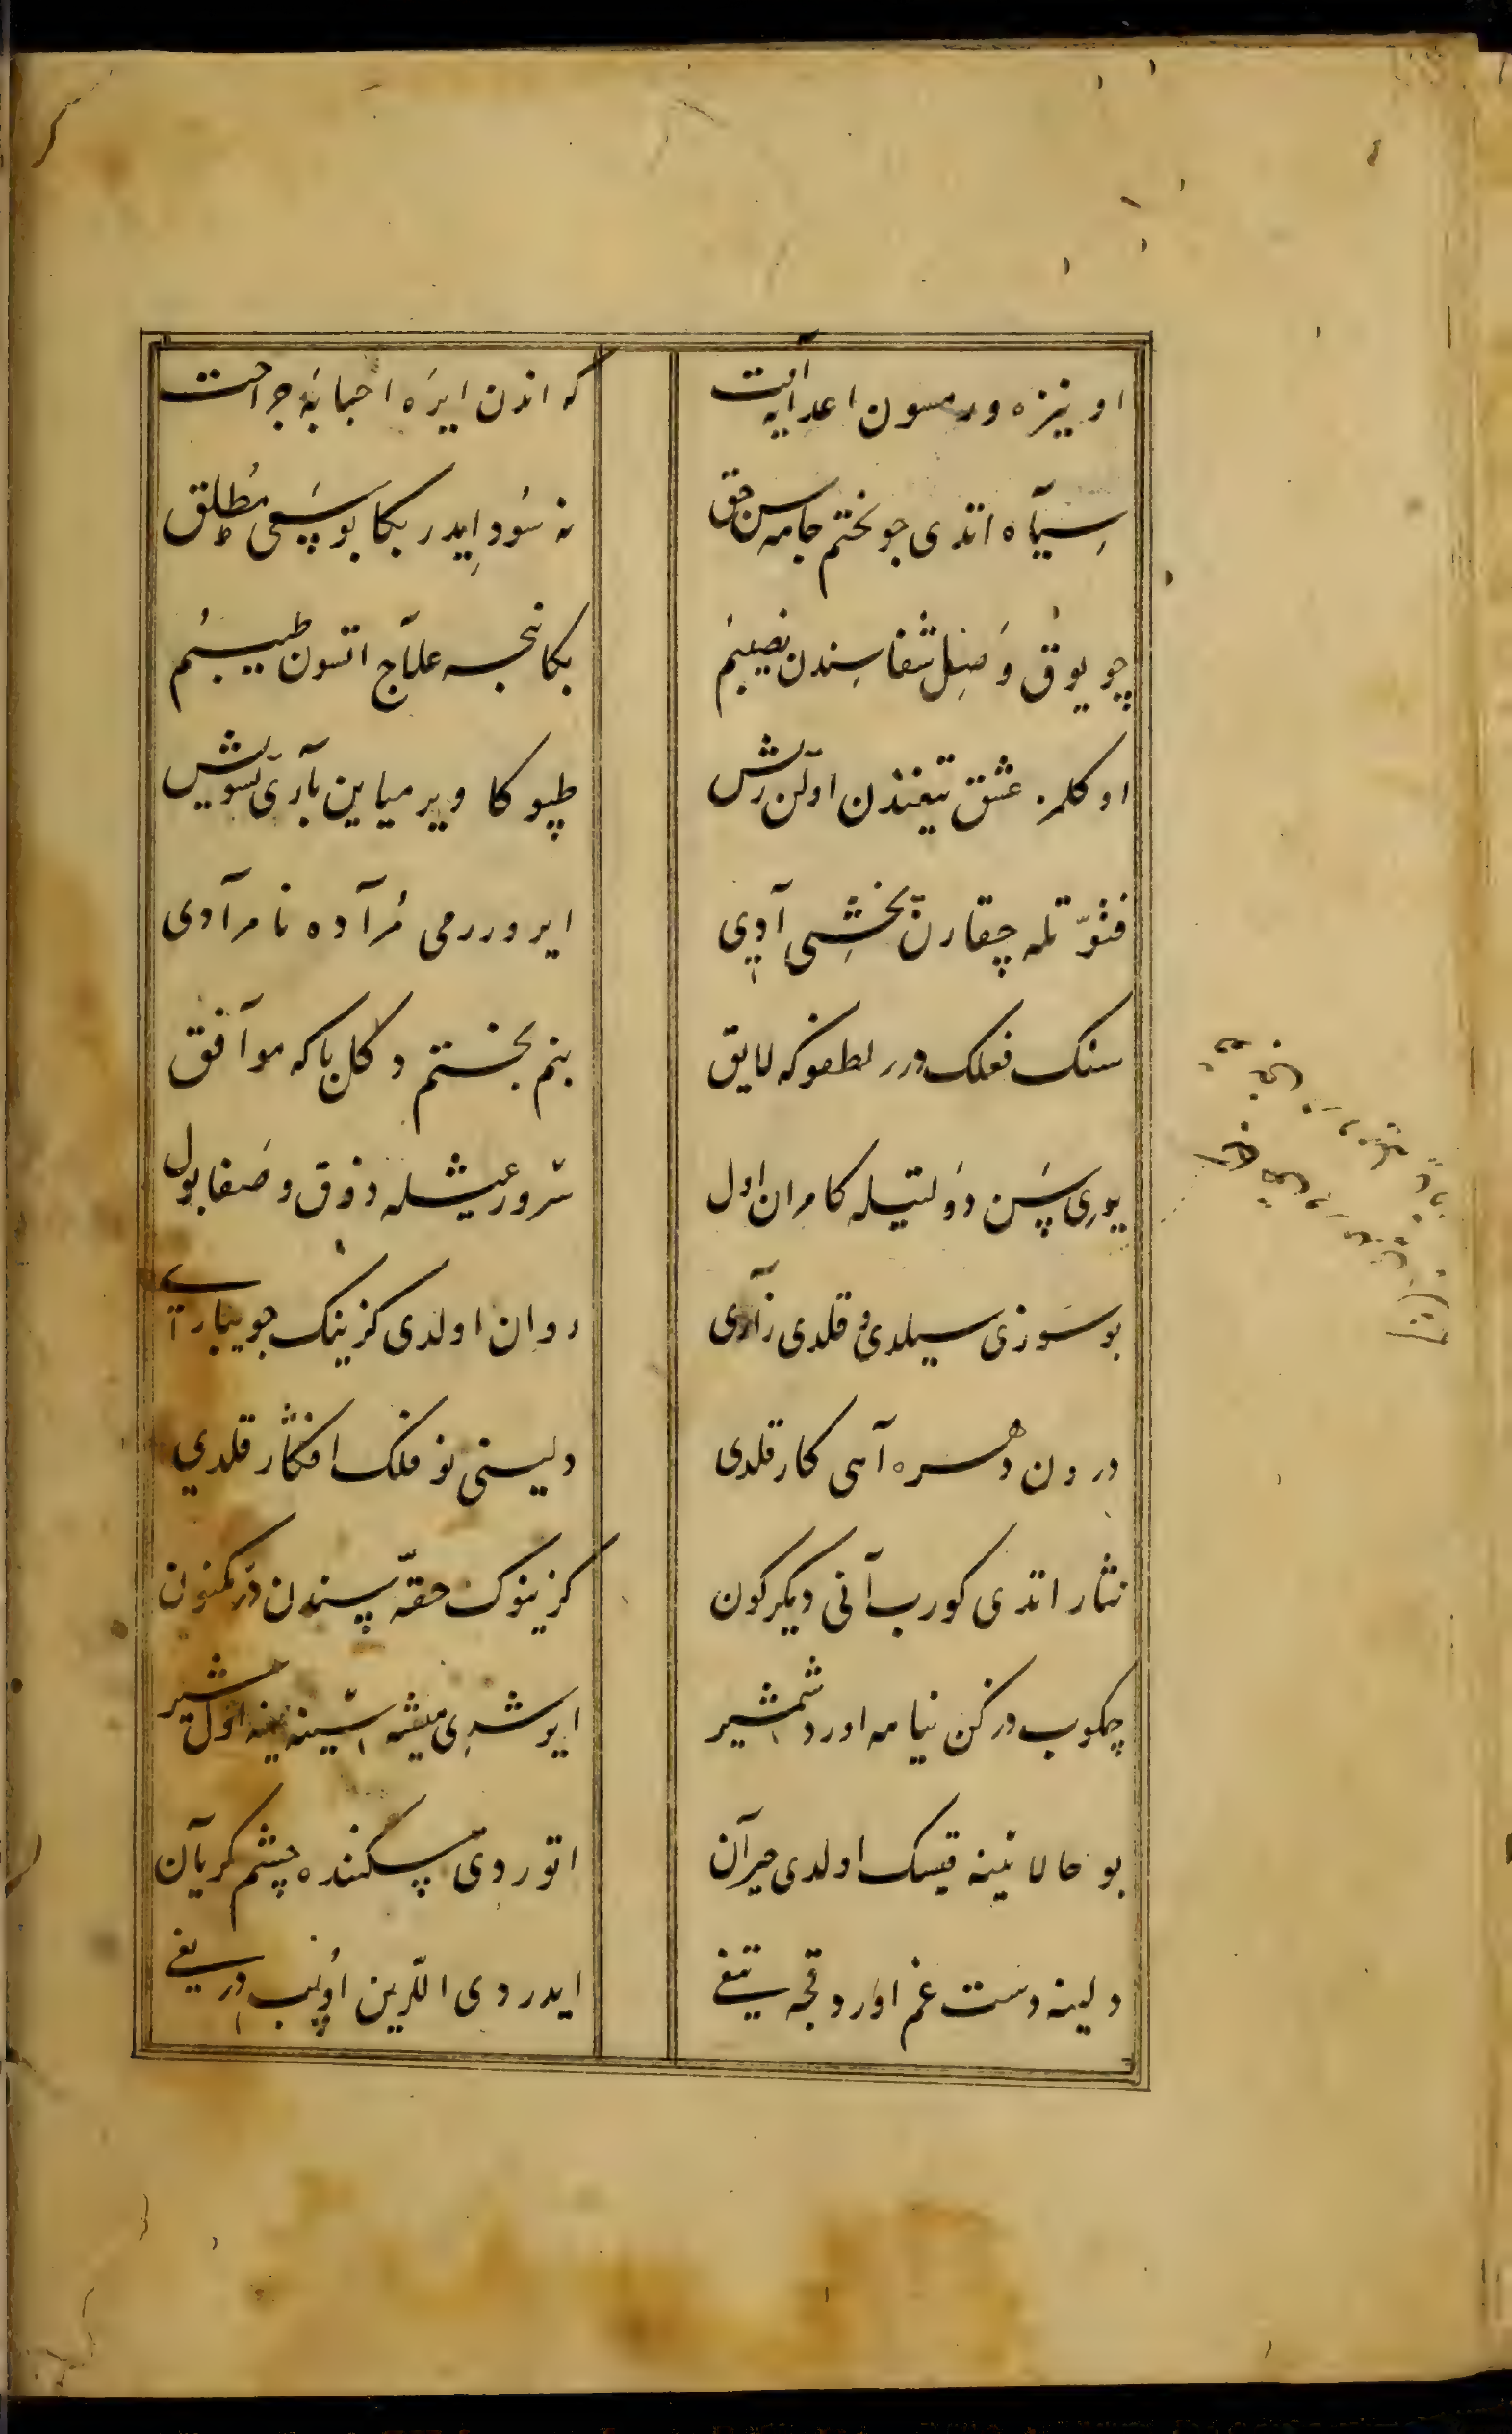 او نیزه ورمسون اعدایه آلت که اندن ایره احبایه جراحت
سیاه اتدی جو بختم جامه سن حق نه سود ایدر بکا بو سعی مطلق
چو یوق وصل شفاسندن نصیبم بکا نجه علاج اتسون طبیبم
اوکلمز عشق تیغندن اولن ریش طپوکا ویرمیاین باری تشویش
فتوّتله چقارن یخشی آدی ایرورر می مراده نامرادی
سنک فعلک درر لطفوکه لایق بنم بختم دکل باکه موافق
یوری سن دولتیله کامران اول سرور عیشله ذوق و صفا بول
بو سوزی سیلدی و قلدی زاری روان اولدی کزینک جویباری
درون دهره آهی کار قلدی دلینی نوفلک افکار قلدی
نثار اتدی کورب آنی دیکرکون کزینوک حقه سندن در مکنون
چکوب درکن نیامه اوردو شمشیر ایو شدی میشه سینه ینه اول شیر
بو حالاتینه قیسک اولدی حیران اتوردی مسکنده چشم کریان
دلینه دست غم اوردقجه تیغی ایدردی اللرین اوپب دریغی